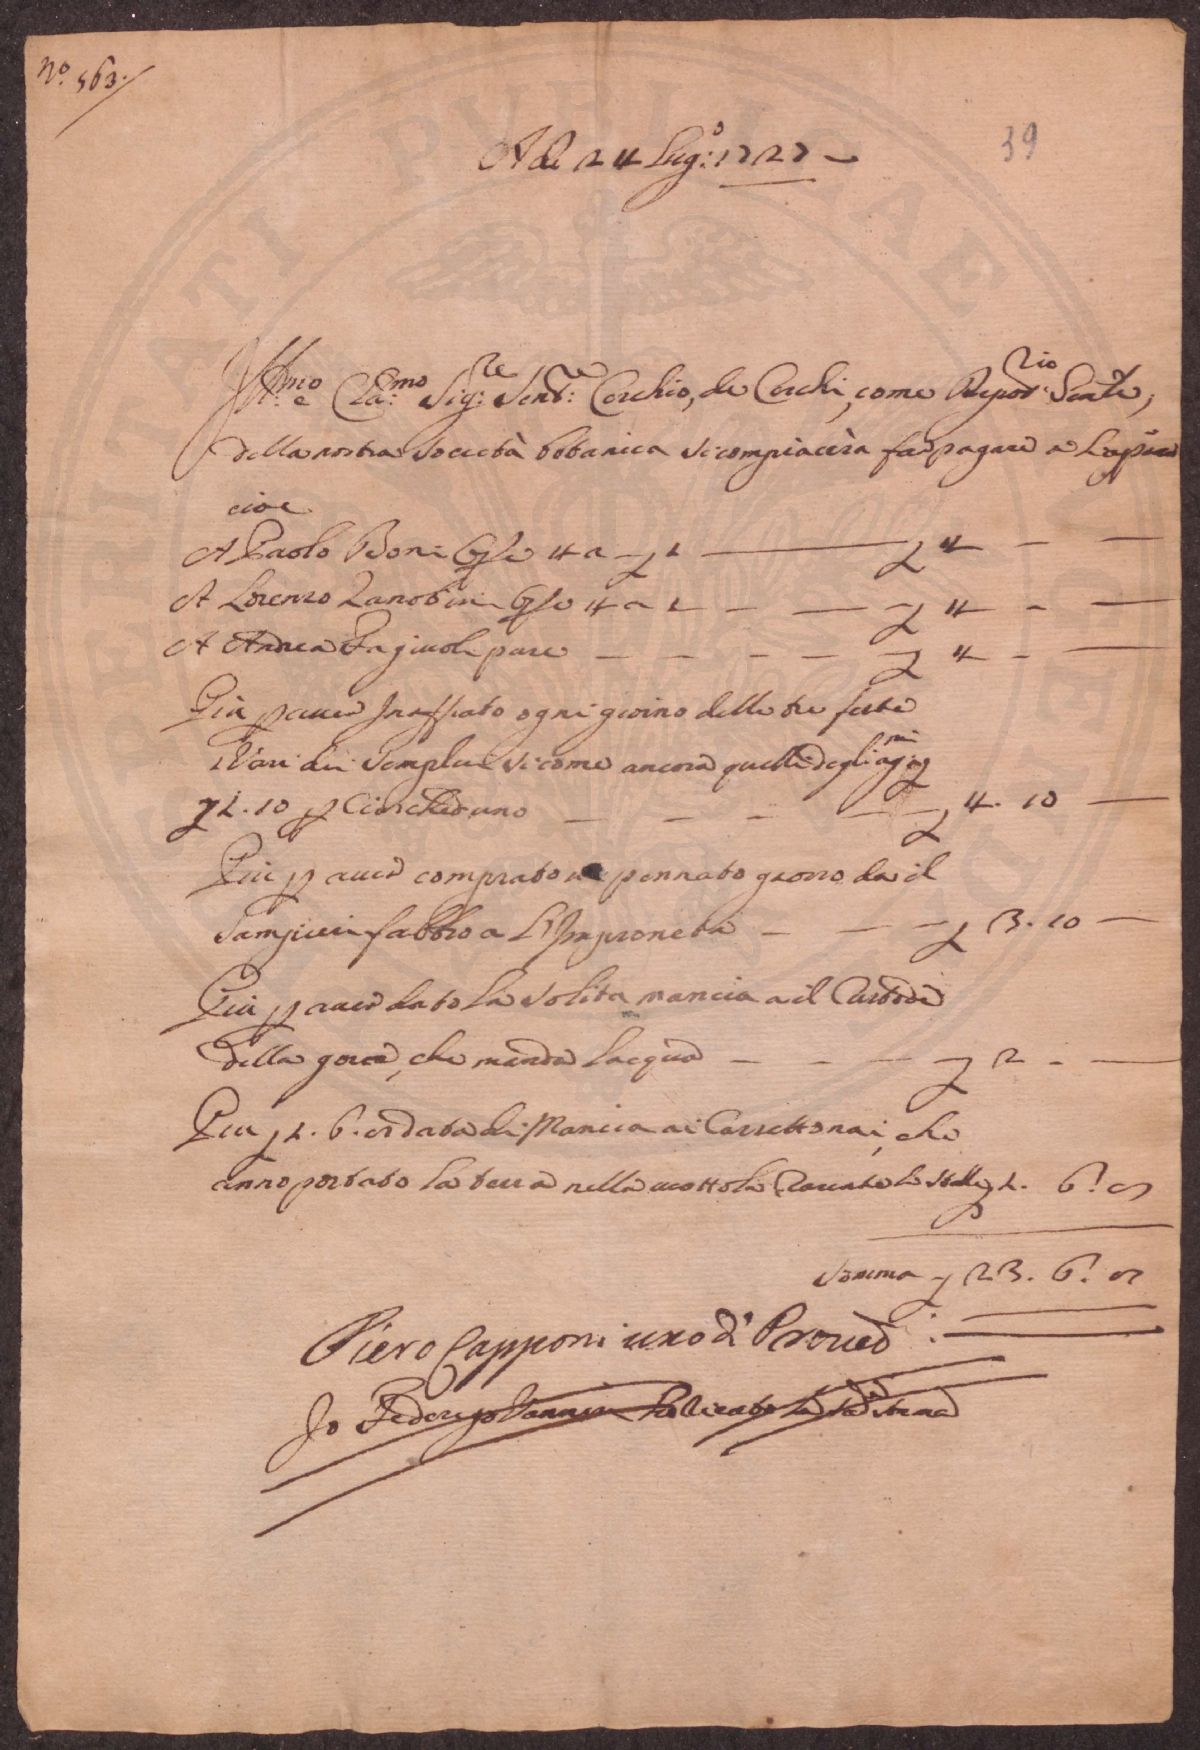 N.º 563.
39
A di 24 Lug:º 1727
Ill:mo e Cla:mo Sig:re Sen:re Cerchio, de Cerchi, come Depos:rio
della nostra Società botanica si compiacera far pagare a
cioe
A Paolo Boni Gste 4 a £ 1 £ 4
A Lorenzo Zanobini Gste 4 a 1 £ 4
A Andrea Fagiuoli pure £ 4
Piu p aver Inaffiato ogni giorno delle tre feste
Vasi dei Semplici si come ancora quelli degli
£ 1. 10 p Ciascheduno £ 4. 10
Piu p aver comprato un pennato grosso da il
fabbro a L'Impruneta £ 3. 10
Piu p aver dato la solita mancia a il Custode
della gora, che manda l'acqua £ 2
Piu £ 1. 6. 8 data di Mancia ai Carrettonai, che
anno portato la terra nella £ 1. 6. 8
Somma £ 23. 6. 8
Piero Capponi uno d' Proved:
Io Federigo